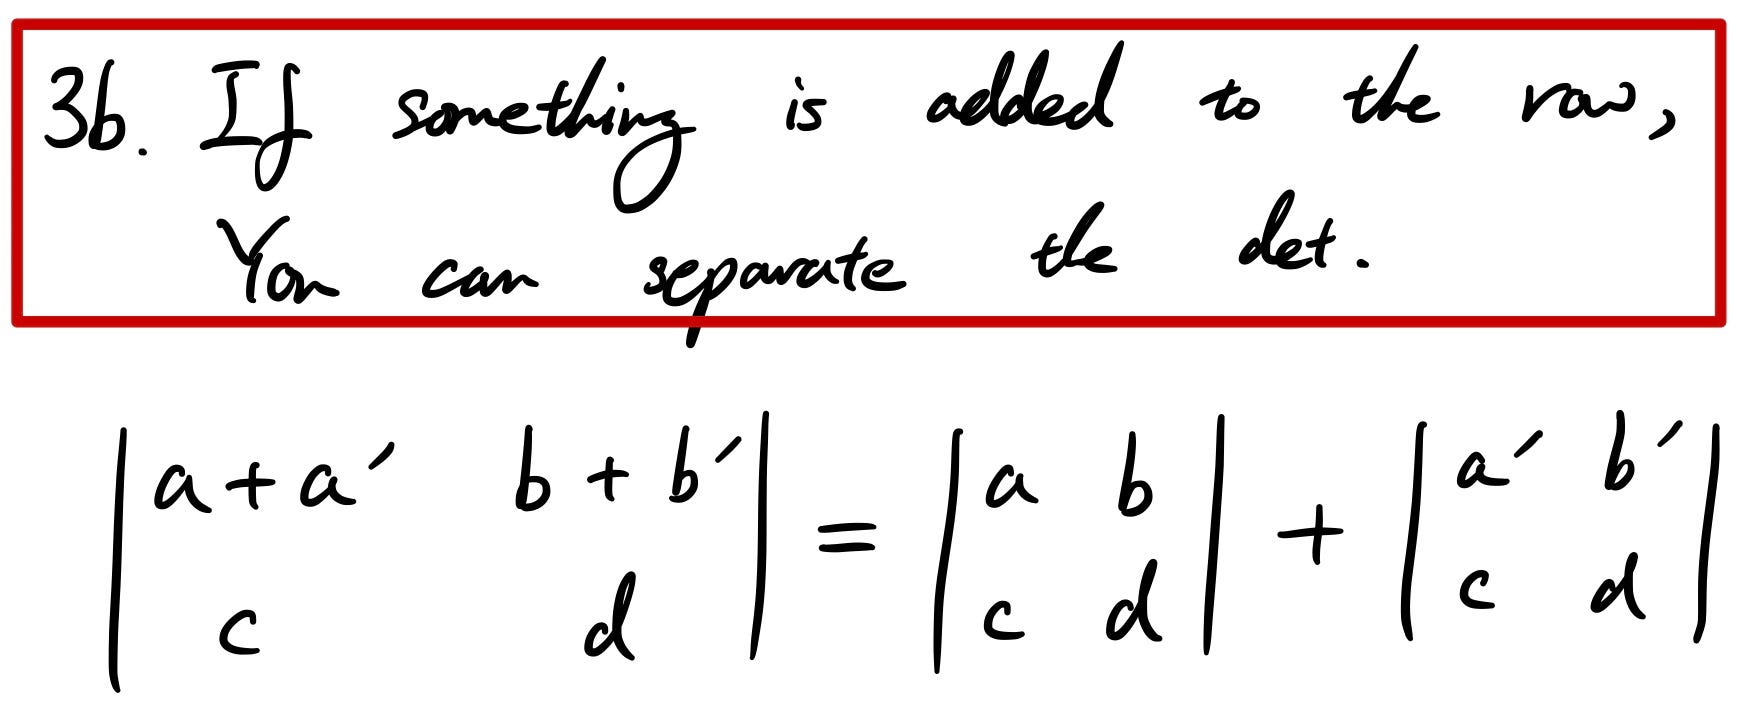 3b. If something is added to the row,
You can separate the det.
| a + a′ b + b′ | = | a b | + | a′ b′ |
| c d | | c d | | c d |